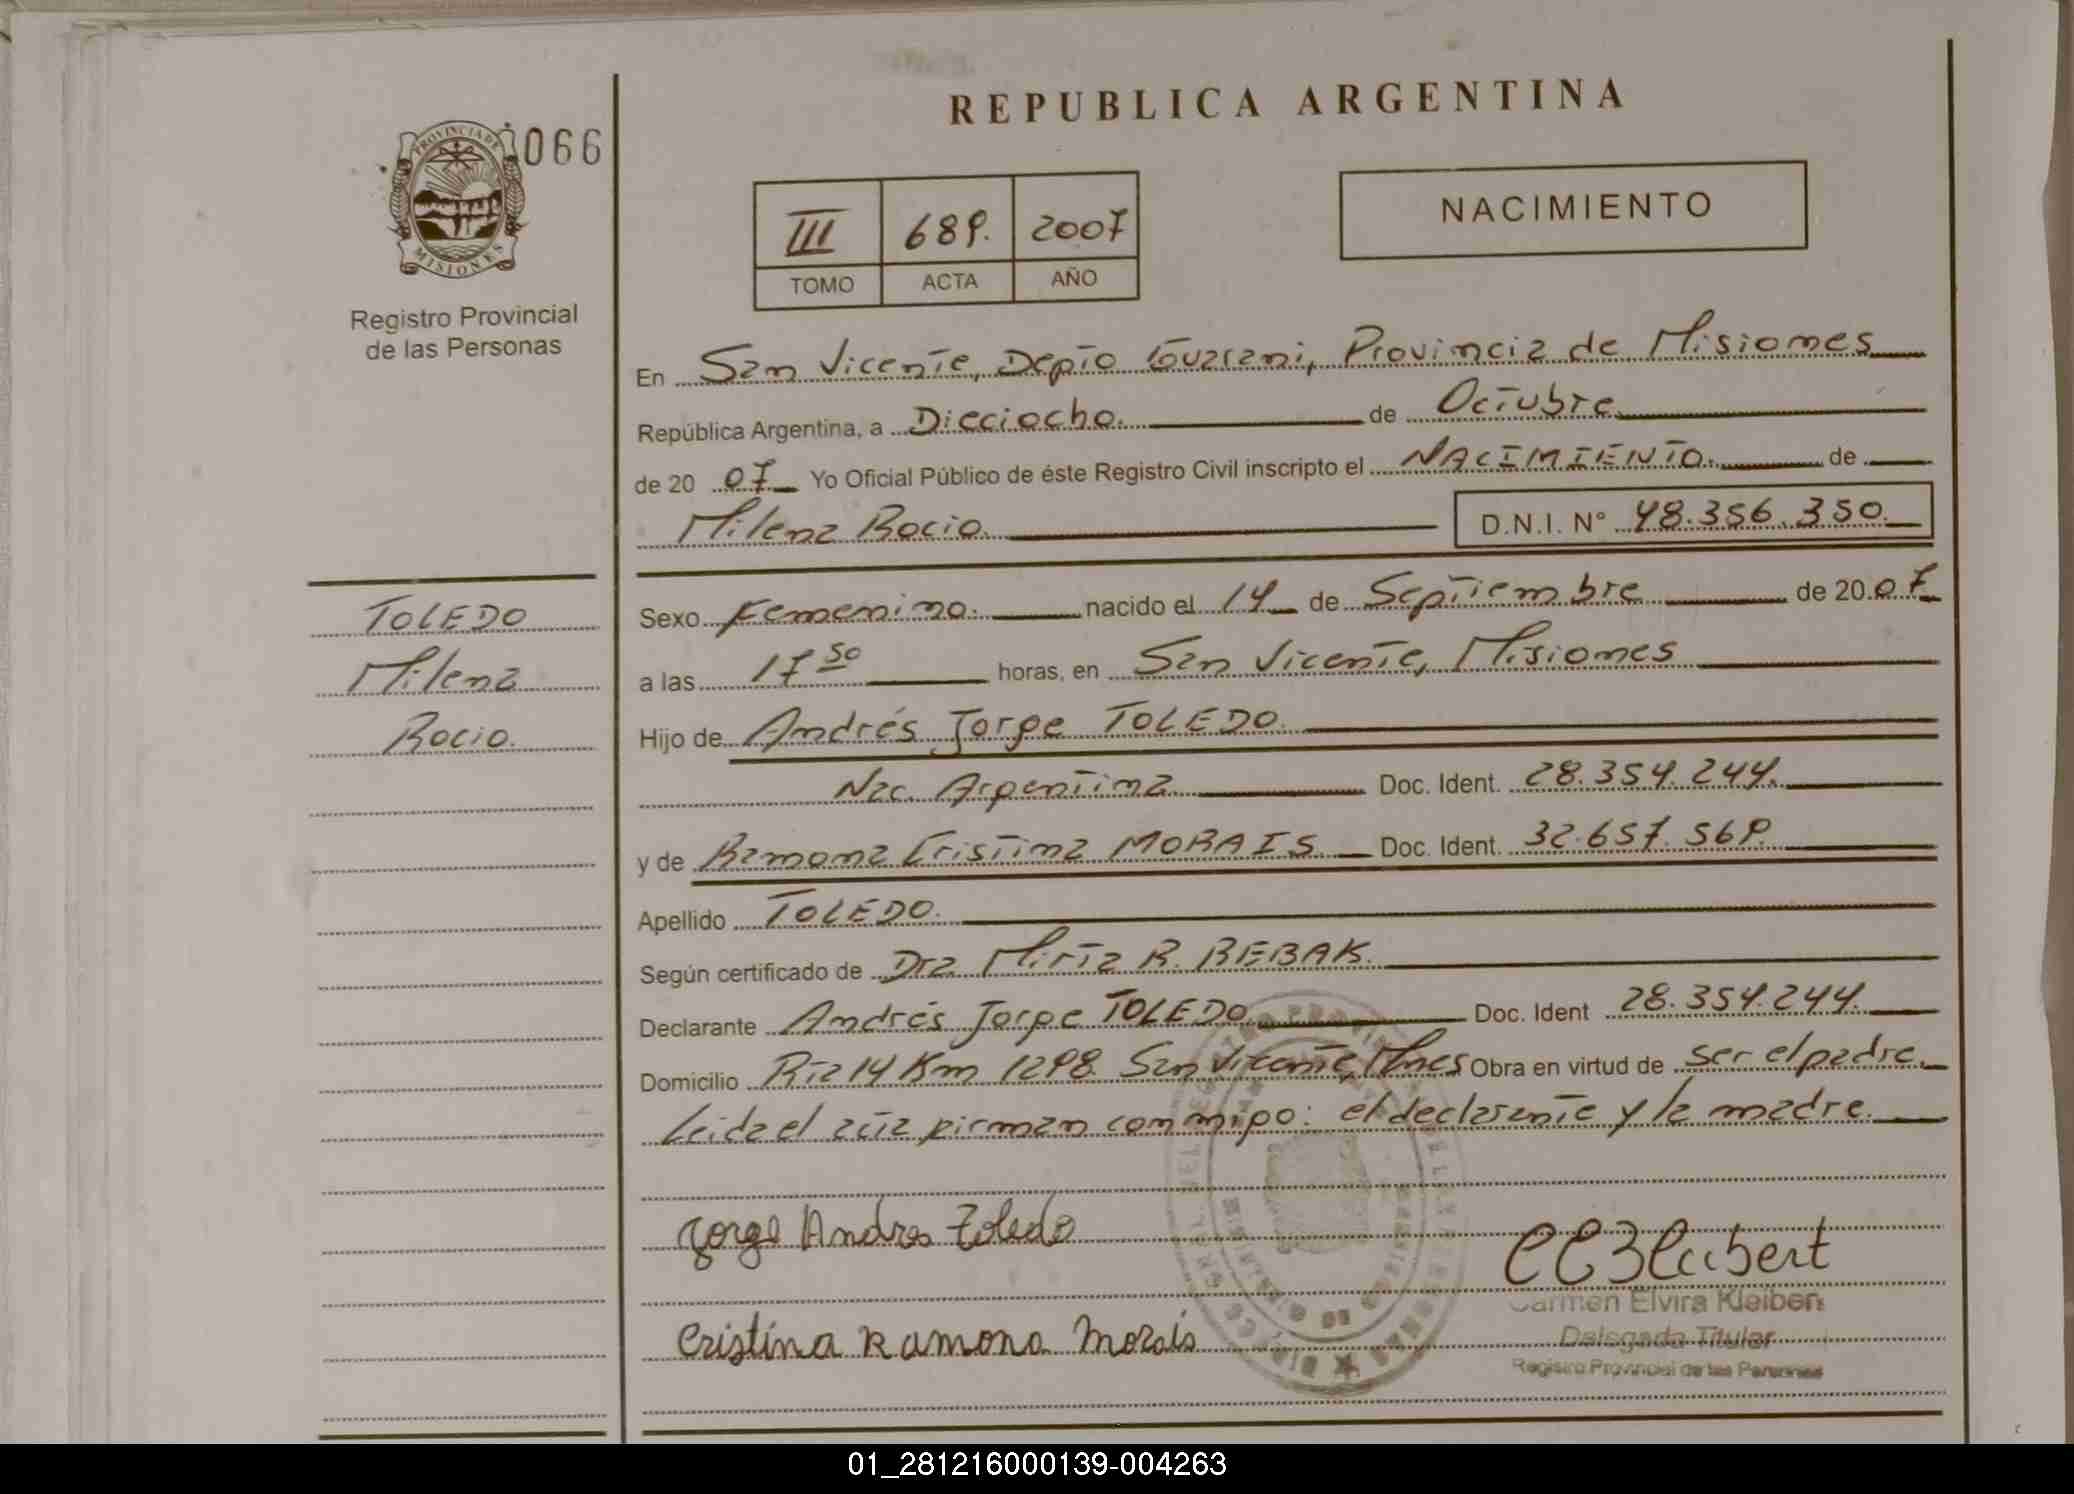 REPUBLICA ARGENTINA
PROVINCIA DE
MISIONES
066
Registro Provincial
de las Personas
III 689. 2007
TOMO ACTA AÑO
NACIMIENTO
En San Vicente, Depto Guarani, Provincia de Misiones
República Argentina, a Dieciocho. de Octubre
de 20 07 Yo Oficial Público de éste Registro Civil inscripto el NACIMIENTO. de
Milena Rocio. D.N.I. N° 48.356.350.
TOLEDO
Milena
Rocio.
Sexo Femenino. nacido el 14 de Septiembre de 20 07
a las 17 50 horas, en San Vicente, Misiones
Hijo de Andrés Jorge TOLEDO.
Nac. Argentina Doc. Ident. 28.354.244.
y de Ramona Cristina MORAIS Doc. Ident. 32.657.569.
Apellido TOLEDO.
Según certificado de Dra Mirta R. REBAK.
Declarante Andrés Jorge TOLEDO Doc. Ident 28.354.244.
Domicilio Rta 14 Km 1298. San Vicente, Mnes Obra en virtud de ser el padre.
Leida el acta firman conmigo: el declarante y la madre.
Jorge Andres Toledo
Cristina Ramona Morais
Carmen Elvira Kleibert
Delegada Titular
Registro Provincial de las Personas
01_281216000139-004263